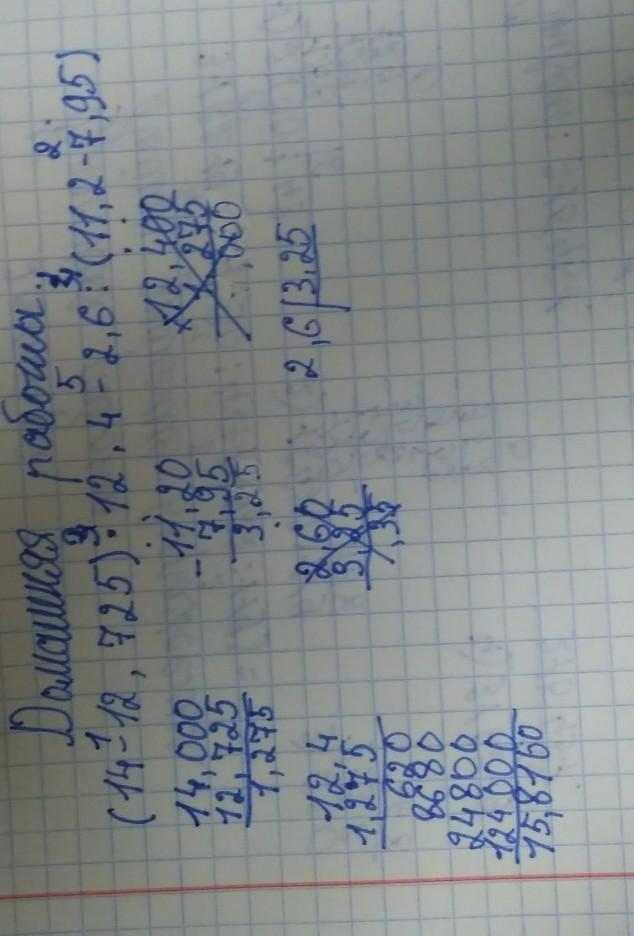 Домашняя работа.
(14-12,725)·12,4-2,6:(11,2-7,95)
14,000
12,725
1,275
-11,20
7,95
3,25
12,400
1,275
000
12,4
1,275
620
8680
24800
124000
15,8160
2,60
3,25
2,6|3,25